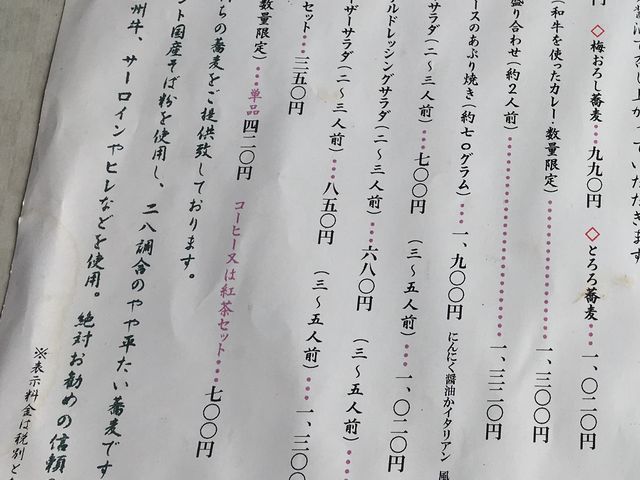 上がっていただきます
円 ◇梅おろし蕎麦…九九〇円 ◇とろろ蕎麦…一、〇二〇円
(和牛を使ったカレー・数量限定)…一、三〇〇円
盛り合わせ(約2人前)…一、三二〇円
ースのあぶり焼き(約七〇グラム)…一、九〇〇円 にんにく醤油かイタリアン風
サラダ(二〜三人前)…七〇〇円 (三〜五人前)…一、〇二〇円
ルドレッシングサラダ(二〜三人前)…六八〇円 (三〜五人前)…
ーザーサラダ(二〜三人前)…八五〇円 (三〜五人前)…一、三〇
セット…三五〇円
数量限定)…単品四二〇円 コーヒー又は紅茶セット…七〇〇円
ちらの蕎麦をご提供致しております。
ント国産そば粉を使用し、二八調合のやや平たい蕎麦です
州牛、サーロインやヒレなどを使用。絶対お勧めの信頼の
※表示料金は税別と